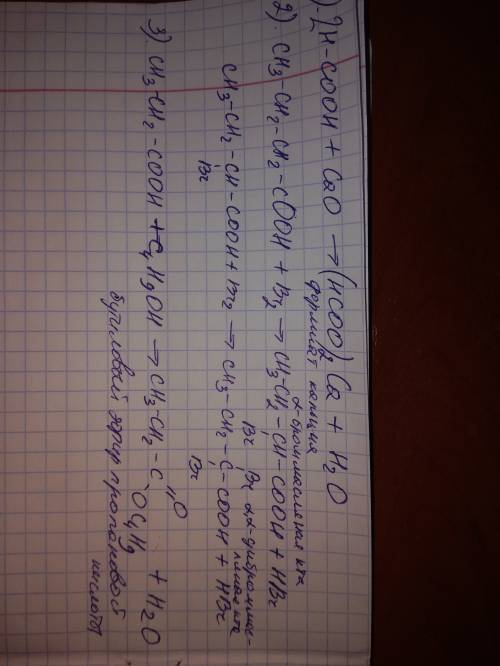 1). 2H-COOH + CaO → (HCOO)₂Ca + H₂O
формиат кальция
2). CH₃-CH₂-CH₂-COOH + Br₂ → CH₃-CH₂-CH-COOH + HBr
Br
α-броммасляная к-та
CH₃-CH₂-CH-COOH + Br₂ → CH₃-CH₂-C-COOH + HBr
Br
Br
Br
α,α-диброммас-
ляная к-та
3). CH₃-CH₂-COOH + C₄H₉OH → CH₃-CH₂-C
O
OC₄H₉
+ H₂O
бутиловый эфир пропановой
кислоты